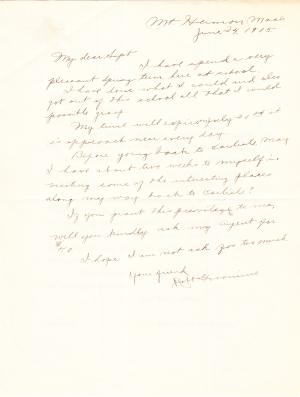 Mt Hermon, Mass
June 1915
My dear Supt
I have spend a very
pleasant Spring term here at school.
I have done what I could and also
got out of the school all that I could
possible grasp
My time will expire as it
is approach near every day.
Before going back to Carlisle, May
I have about two weeks to myself in
visiting some of the interesting places
along my way back to Carlisle?
If you grant this to me,
will you kindly ask my agent for
I hope I am not ask you too much
Your friend